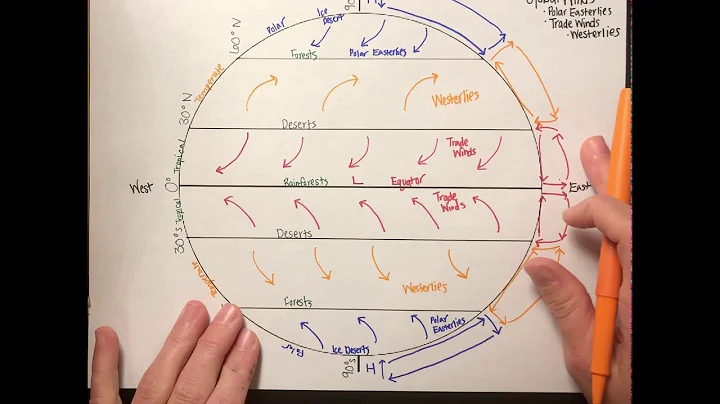 Global Winds
· Polar Easterlies
· Trade Winds
· Westerlies
90°
H
Ice
Desert
Polar
60° N
Forests
Polar Easterlies
Temperate
Westerlies
30° N
Deserts
Tropical
Trade
Winds
West
0°
Rainforests
L
Equator
East
Tropical
Trade
Winds
30° S
Deserts
Temperate
Westerlies
Forests
Polar
Easterlies
Polar
Ice Deserts
90°S
H